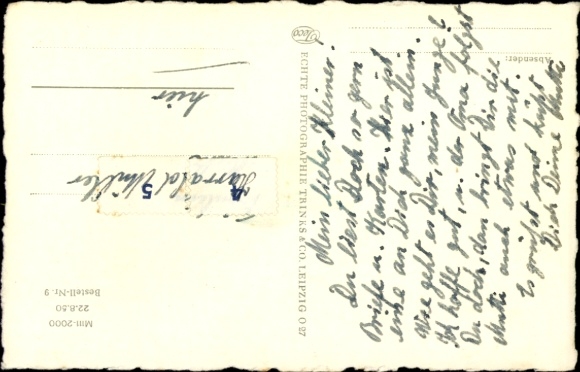 Absender:
Mein lieber Kleiner!
Du liest doch so gern
Briefe u. Karten. Hier ist
eine an Dich ganz allein.
Wie geht es Dir, mein Junge?
Ich hoffe gut, u. der Oma folgst
Du doch, dann bringt Dir die
Mutti auch etwas mit.
Es grüßt und küßt
Dich Deine Mutti
Trinco
ECHTE PHOTOGRAPHIE TRINKS & CO. LEIPZIG O 27
Harrald
5
hier
Mitt-2000
22.8.50
Bestell-Nr. 9